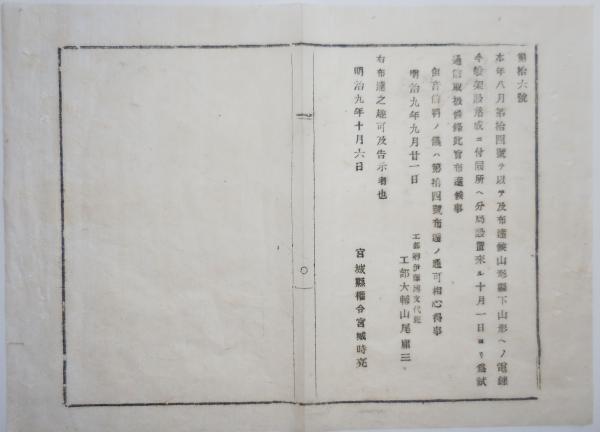 第拾六號
本年八月第拾四號ヲ以テ及布達候山形縣下山形ヘノ電線
今般架設落成ニ付同所ヘ分局設置來ル十月一日ヨリ為試
通信取扱候條此旨布達候事
但音信料ノ儀ハ第拾四號布達ノ通可相心得事
明治九年九月廿一日
工部卿伊藤博文代理
工部大輔山尾庸三
右布達之趣可及告示者也
明治九年十月六日
宮城縣權令宮城時亮